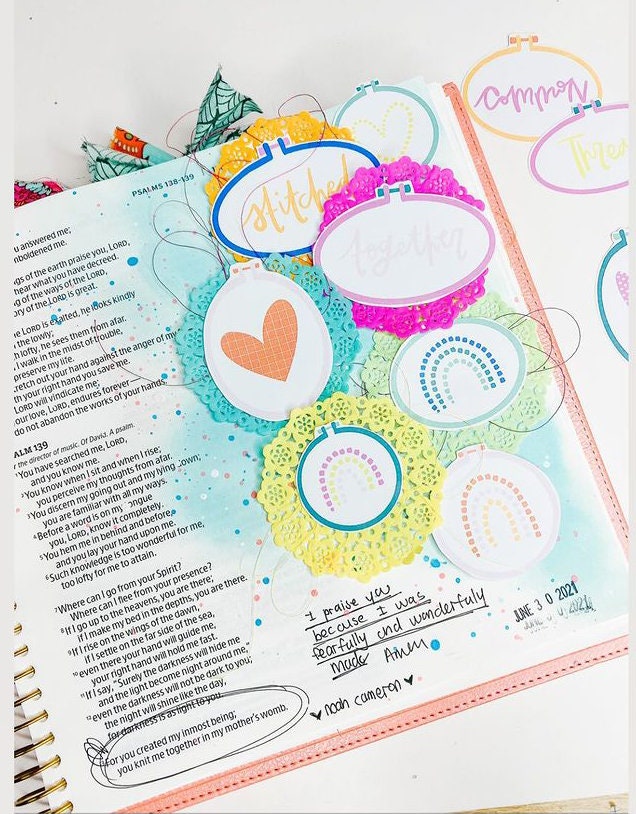 PSALMS 138-139
u answered me;
nboldened me.
ngs of the earth praise you, LORD,
hear what you have decreed.
g of the ways of the LORD,
ory of the LORD is great.
e LORD is exalted, he looks kindly
the lowly;
h lofty, he sees them from afar.
I walk in the midst of trouble,
preserve my life.
retch out your hand against the anger of my
th your right hand you save me.
LORD will vindicate me;
our love, LORD, endures forever—
do not abandon the works of your hands.
ALM 139
the director of music. Of David. A psalm.
1You have searched me, LORD,
and you know me.
2You know when I sit and when I rise;
you perceive my thoughts from afar.
3You discern my going out and my lying down;
you are familiar with all my ways.
4Before a word is on my tongue
you, LORD, know it completely.
5You hem me in behind and before,
and you lay your hand upon me.
6Such knowledge is too wonderful for me,
too lofty for me to attain.
7Where can I go from your Spirit?
Where can I flee from your presence?
8If I go up to the heavens, you are there;
if I make my bed in the depths, you are there.
9If I rise on the wings of the dawn,
if I settle on the far side of the sea,
10even there your hand will guide me,
your right hand will hold me fast.
11If I say, "Surely the darkness will hide me
and the light become night around me,"
12even the darkness will not be dark to you;
the night will shine like the day,
for darkness is as light to you.
13For you created my inmost being;
you knit me together in my mother's womb.
common
Threa
stitched
together
I praise you
because I was
fearfully and wonderfuly
made Amen
♥ noah cameron ♥
JUNE 3 0 2021
JUNE 3 0 2021